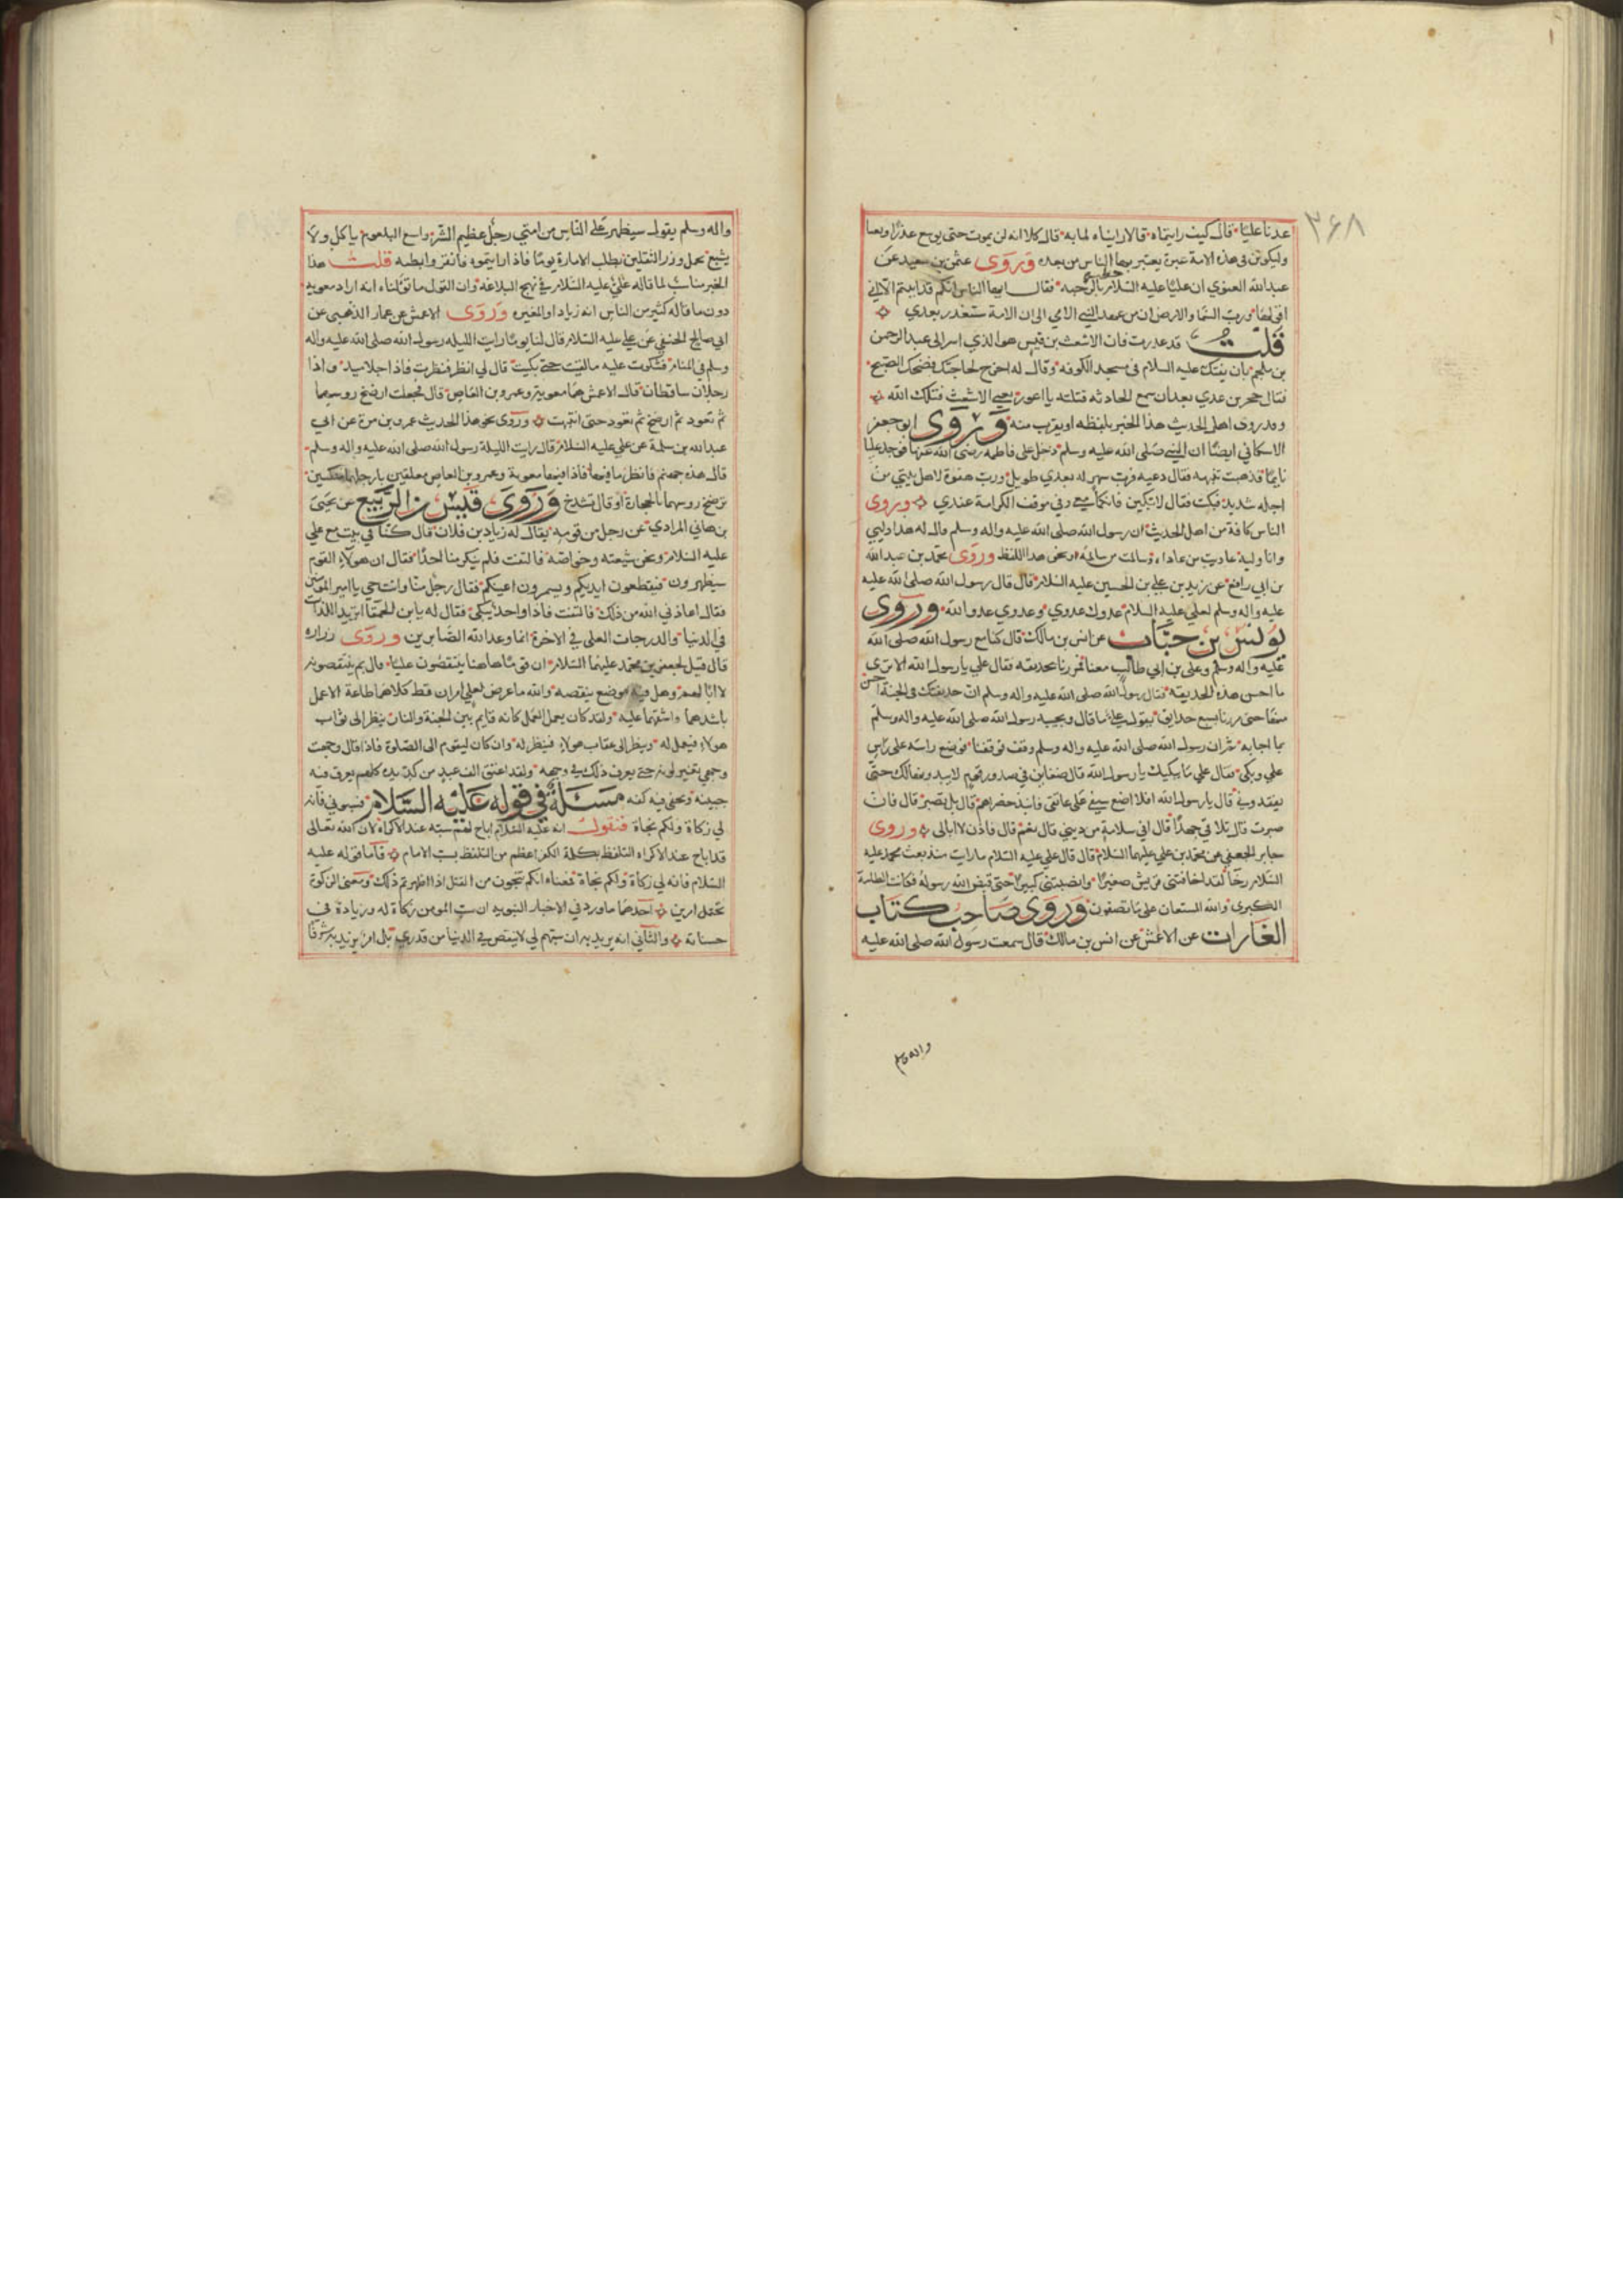 ٣٦٨
عدنا عليا قال كيف رايتماه قالا رايناه لما به قال كلا انه لن يموت حتى يوسع غدرا وبغيا
وليكونن في هذه الامة عبرة يعتبر بها الناس من بعده وروى عثمن بن سعيد عن
عبدالله الغنوي ان عليا عليه السلام خطب بالرحبه فقال ايها الناس انكم قد ابيتم الا ان
اقولها ورب السما والارض ان من عهد النبي الامي الى ان الامة ستغدر بعدي
قلت قد غدرت فان الاشعث بن قيس هو الذي اسر الى عبد الرحمن
بن ملجم بان يفتك عليه السلام في مسجد الكوفه وقال له احتج لحاجتك فضحك الصبح
فقال حجر بن عدي بعد ان سمع الحادثه قتلته يا اعور يعني الاشعث قتلك الله
وقد روى اهل الحديث هذا الخبر بلفظه او بقرب منه وروى ابو جعفر
الاسكافي ايضا ان النبي صلى الله عليه وسلم دخل على فاطمه رضى الله عنها فوجد عليا
نايما فذهبت تنبهه فقال دعيه فرب سهر له بعدي طويل ورب جفوة لاهل بيتي من
اجله شديدة فبكت فقال لا تبكين فانكما معي وفي موقف الكرامة عندي وروى
الناس كافة من اهل الحديث ان رسول الله صلى الله عليه واله وسلم قال له هذا وليي
وانا وليه عاديت من عاداه وسالمت من سالمه او نحو هذا اللفظ وروى محمد بن عبد الله
بن ابي رافع عن زيد بن علي بن الحسين عليه السلام قال قال رسول الله صلى الله عليه
عليه واله وسلم لعلي عليه السلام عدوك عدوي وعدوي عدو الله وروى
يونس بن حباب عن انس بن مالك قال كنا مع رسول الله صلى الله
عليه واله وسلم وعلى بن ابي طالب معنا فمررنا بحديقه فقال علي يا رسول الله الا ترى
ما احسن هذه الحديقه فقال رسول الله صلى الله عليه واله وسلم ان حديقتك في الجنة احسن
منها حتى مررنا بسبع حدايق يقول علي ما قال ويجيبه رسول الله صلى الله عليه واله وسلم
بما اجابه ثم ان رسول الله صلى الله عليه واله وسلم وقف فوقفنا فوضع راسه على راس
علي وبكى فقال علي ما يبكيك يا رسول الله قال ضغاين في صدور قوم لا يبدونها لك حتى
يفقدوني قال يا رسول الله افلا اضع سيفي على عاتقي فابيد خضراهم قال بل تصبر قال فان
صبرت قال تلاقي جهدا قال افي سلامة من ديني قال نعم قال فاذن لا ابالي وروى
جابر الجعفي عن محمد بن علي عليهما السلام قال قال علي عليه السلام ما رايت منذ بعث محمد عليه
السلام رخا لقد اخافتني قريش صغيرا وانصبتني كبيرا حتى قبض الله رسوله فكانت الطامة
الكبرى والله المستعان على ما تصفون وروى صاحب كتاب
الغارات عن الاعمش عن انس بن مالك قال سمعت رسول الله صلى الله عليه
واله وسلم
واله وسلم يقول سيظهر على الناس من امتي رجل عظيم السر واسع البلعوم ياكل ولا
يشبع يحمل وزر الثقلين يطلب الامارة يوما فاذا رايتموه فابقروا بطنه قلت هذا
الخبر مناسب لما قاله علي عليه السلام في نهج البلاغه وان القول ما قلناه انه اراد معويه
دون ما قاله كثير من الناس انه زياد او المغيره وروى الاعمش عن عمار الذهبى عن
ابي صالح الحنفي عن علي عليه السلام قال لنا يوما رايت الليله رسول الله صلى الله عليه واله
وسلم في المنام فشكوت عليه ما لقيت حتى بكيت قال لي انظر فنظرت فاذا جلاميد واذا
رجلان ساقطان قال الاعمش هما معوية وعمرو بن العاص قال فجعلت ارضخ روسهما
ثم تعود ثم ارضخ ثم تعود حتى انتبهت وروى نحو هذا الحديث عمرو بن مرة عن ابي
عبدالله بن سلمة عن علي عليه السلام قال رايت الليلة رسول الله صلى الله عليه واله وسلم
قال هذه جهنم فانظر ما فيها فاذا فيها معوية وعمرو بن العاص معلقين بارجلهما منكسين
ترضخ روسهما بالحجارة او قال تشدخ وروى قيس بن الربيع عن يحيى
بن هاني المرادي عن رجل من قومه يقال له زياد بن فلان قال كنا في بيت مع علي
عليه السلام ونحن شيعته وخواصه فالتفت فلم ينكر منا احدا فقال ان هولاء القوم
سيظهرون فيقطعون ايديكم ويسمرون اعينكم فقال رجل منا وانت حي يا امير المومنين
فقال اعاذني الله من ذلك فالتفت فاذا واحد يبكى فقال له يا بن الحمقا اتريد اللذات
في الدنيا والدرجات العلى في الاخرة انما وعد الله الصابرين وروى زراره
قال قيل لجعفر بن محمد عليهما السلام ان قوما هاهنا ينتقصون عليا قال بم ينتقصونه
لا ابا لهم وهل فيه موضع نقيصه والله ما عرض لعلي امران قط كلاهما طاعة الا عمل
باشدهما واشقهما عليه ولقد كان يعمل العمل كانه قايم بين الجنة والنار ينظر الى ثواب
هولاء فيعمل له وينظر الى عقاب هولاء فينظر له وان كان ليقوم الى الصلوة فاذا قال وجهت
وجهي تغير لونه حتى يعرف ذلك في وجهه ولقد اعتق الف عبد من كد يده كلهم يعرق فيه
جبينه وتحفى فيه كفه مسئلة في قوله عليه السلام فسبوني فانه
لي زكاة ولكم نجاة فنقول انه عليه السلام اباح لهم سبه عند الاكراه لان الله تعالى
قد اباح عند الاكراه التلفظ بكلمة الكفر اعظم من التلفظ بسب الامام فاما قوله عليه
السلام فانه لي زكاة ولكم نجاة فمعناه انكم تنجون من القتل اذا اظهرتم ذلك ومعنى الزكوة
يحتمل امرين احدهما ما ورد في الاخبار النبويه ان سب المومن زكاة له وزيادة في
حسناته والثاني انه يريد به ان سبهم لي لا ينقص في الدنيا من قدري بل ازيد به شرفا